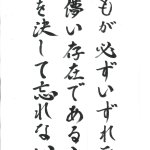 もが必ずいずれ
儚い存在である
を決して忘れない